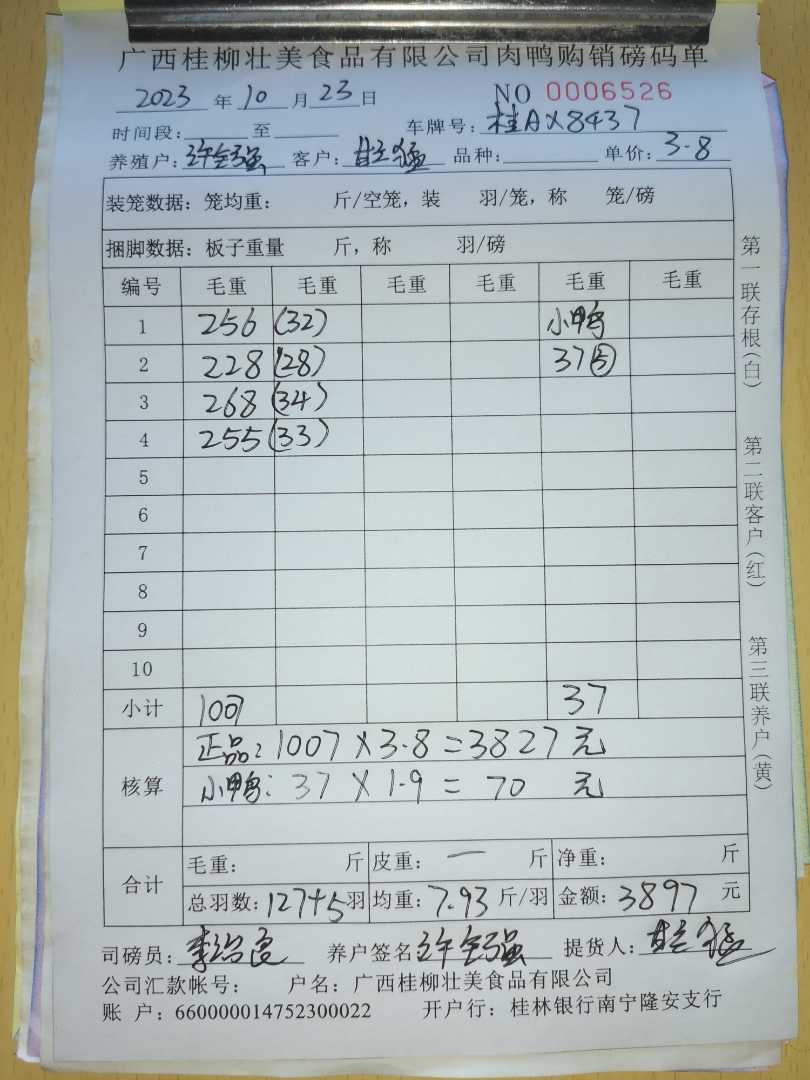 广西桂柳壮美食品有限公司肉鸭购销磅码单
2023 年 10 月 23 日 NO 0006526
时间段: 至 车牌号: 桂AX8437
养殖户: 许全强 客户: 甘猛 品种: 单价: 3.8
装笼数据: 笼均重: 斤/空笼，装 羽/笼，称 笼/磅
捆脚数据: 板子重量 斤，称 羽/磅
编号 毛重 毛重 毛重 毛重 毛重 毛重
1 256 (32) 小鸭
2 228 (28) 37⑤
3 268 (34)
4 255 (33)
5
6
7
8
9
10
小计 1007 37
核算 正品: 1007 X 3.8 = 3827 元
小鸭: 37 X 1.9 = 70 元
合计 毛重: 斤 皮重: 一 斤 净重: 斤
总羽数: 127+5 羽 均重: 7.93 斤/羽 金额: 3897 元
司磅员: 李 良 养户签名 许全强 提货人: 甘猛
公司汇款帐号: 户名: 广西桂柳壮美食品有限公司
账 户: 660000014752300022 开户行: 桂林银行南宁隆安支行
第一联存根(白) 第二联客户(红) 第三联养户(黄)